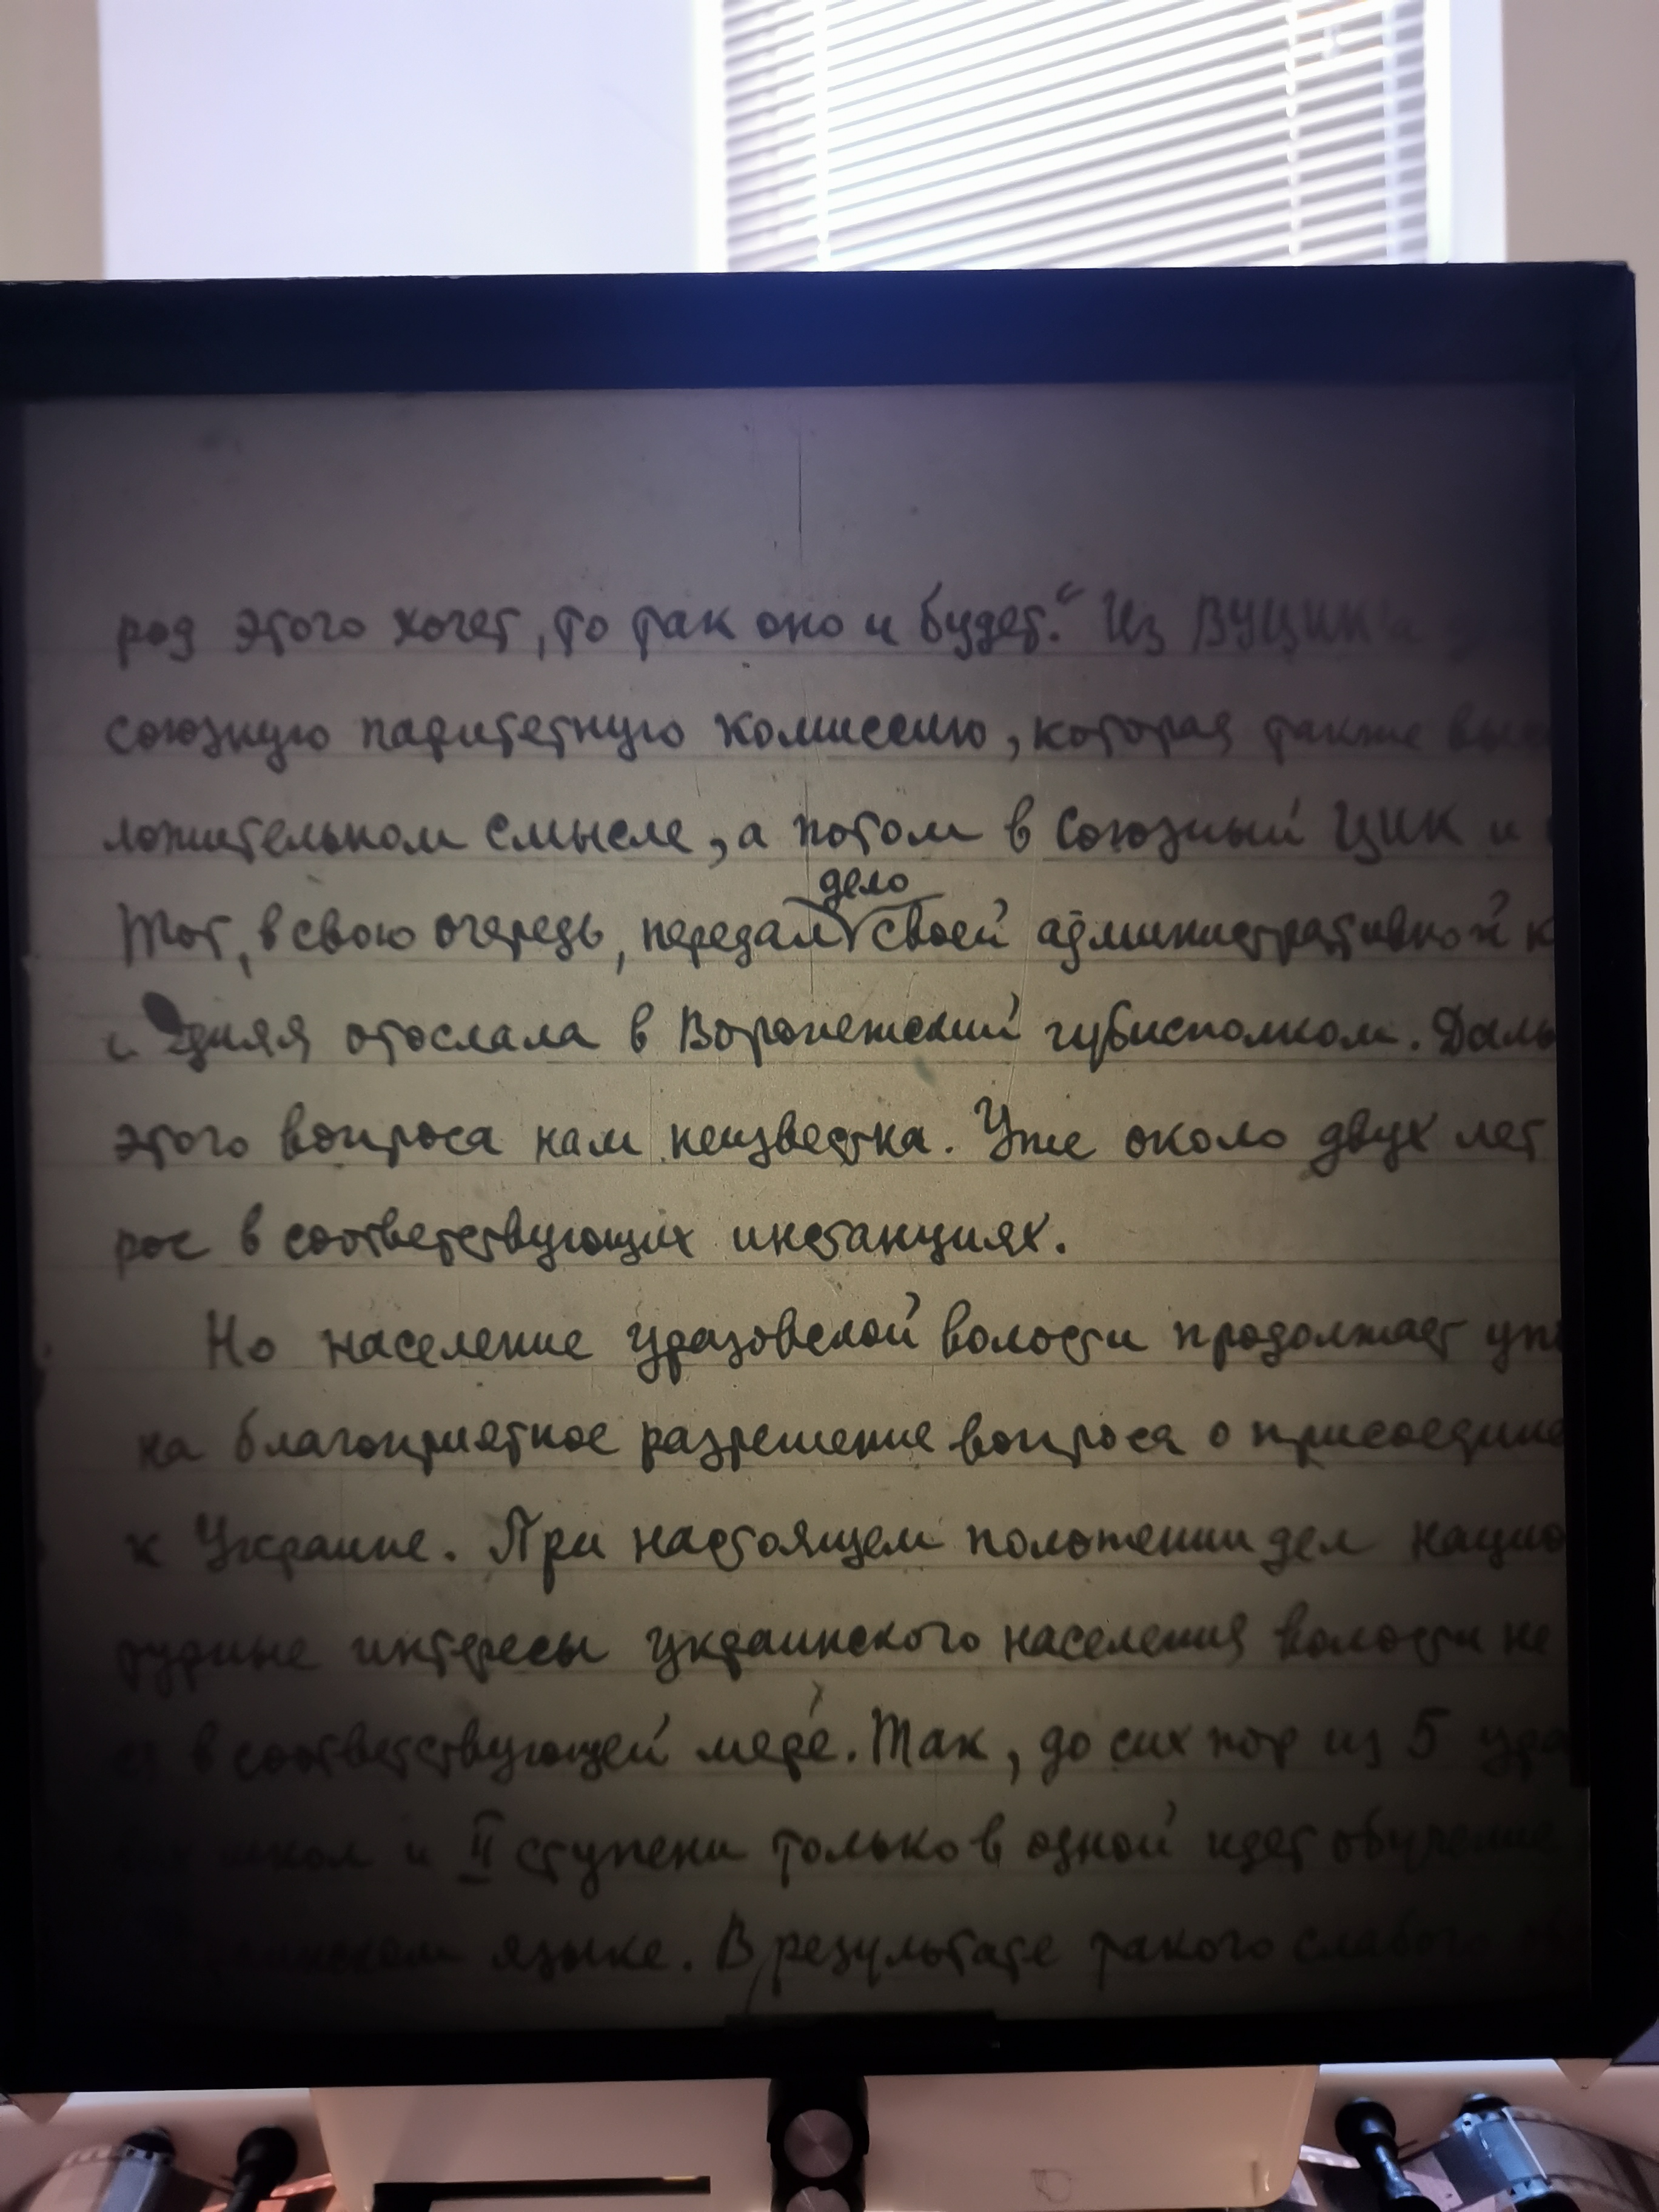 род этого хочет, то так оно и будет." Из ВУЦИК'а
союзную паритетную комиссию, которая также
ложительном смысле, а потом в союзный ЦИК и
дело
Тот, в свою очередь, передал своей административной к
отослала в Воронежский губисполком. Даль
этого вопроса нам неизвестна. Уже около двух лет
рос в соответствующих инстанциях.
Но население Уразовской волости продолжает
на благоприятное разрешение вопроса о присоедине
к Украине. При настоящем положении дел нацио
турные интересы украинского населения волости не
ся в соответствующей мере. Так, до сих пор из 5 ура
школ и II ступени только в одной идет обучение
языке. В результате такого слабого